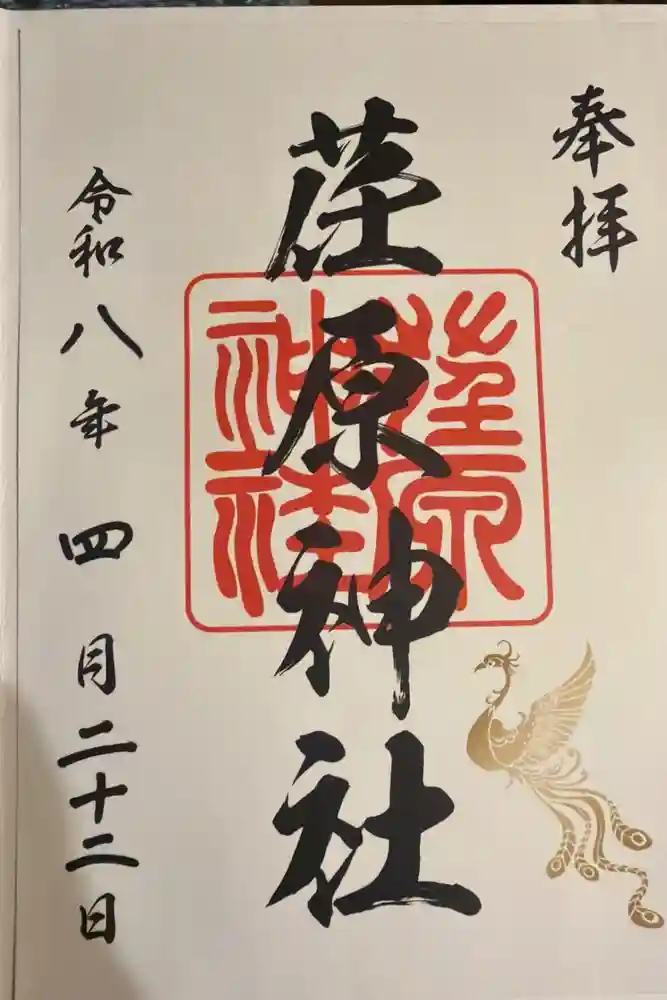 奉拝
荏原神社
荏原神社
令和八年四月二十二日